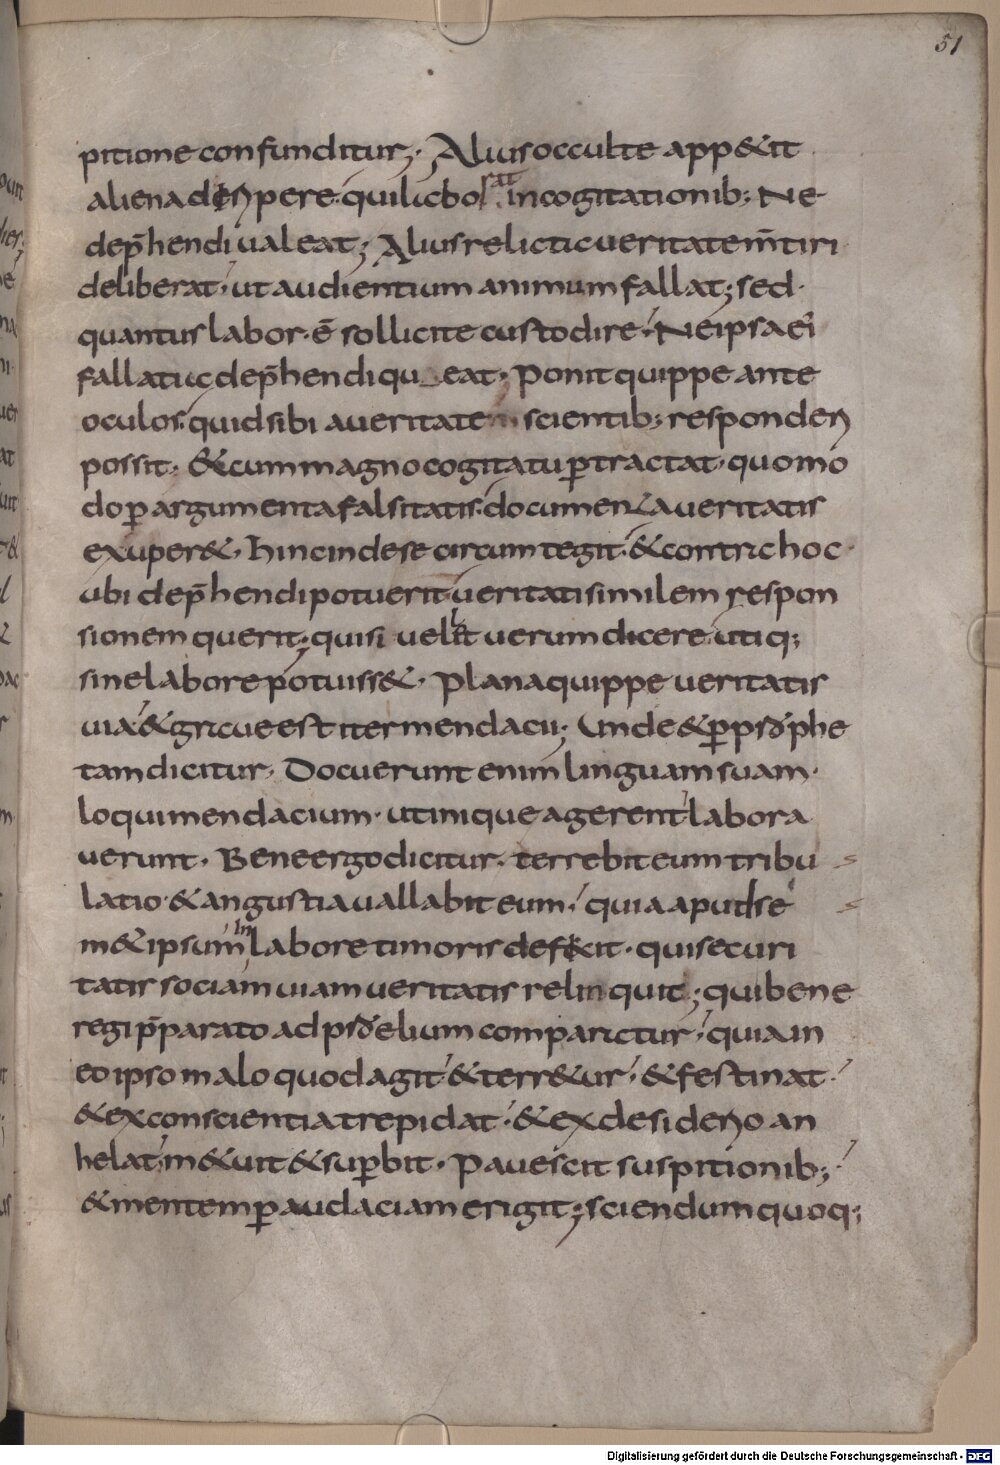 51
pitione confunditur; Alius occulte app&it
aliena deripere. qui licbosat in cogitationib; Ne
dep̄hendi ualeat; Alius relictic ueritate m̄tiri
deliberat, ut audientium animum fallat; sed
quantus labor ē sollicite custodire. Ne ipsa ei
fallatuc dep̄hendi qu eat. Ponit quippe ante
oculos. quid sibi a ueritate scientib; responderi
possit. &cum magno cogitatu ꝑtractat. quomo
do ꝑ argumenta falsitatis. documenta ueritatis
exuper&. hinc inde se circumtegit. &contrc hoc
ubi dep̄hendi potuerit. ueritati similem respon
sionem querit; qui si uell& uerum dicere. utiq;
sine labore potuiss&. Plana quippe ueritatis
uia. &grcue est iter mendacii; Unde &ꝑ pro phe
tam dicitur. Docuerunt enim linguam suam
loqui mendacium. ut inique agerent labora
uerunt. Bene ergo dicitur. terrebit eum tribu
latio. &angustia uallabit eum. quia apud se
m&ipsum in labore timoris deficit. qui securi
tatis sociam uiam ueritatis relinquit; qui bene
regi p̄parato ad proelium comparctur. quia in
eo ipso malo quod agit &terr&ur. &festinat.
&ex conscientia trepidat. &ex desiderio an
helat, m&uit &suꝑbit. Pauescit suspitionib;
&mentem ꝑ audaciam erigit; sciendum quoq;
Digitalisierung gefördert durch die Deutsche Forschungsgemeinschaft - DFG